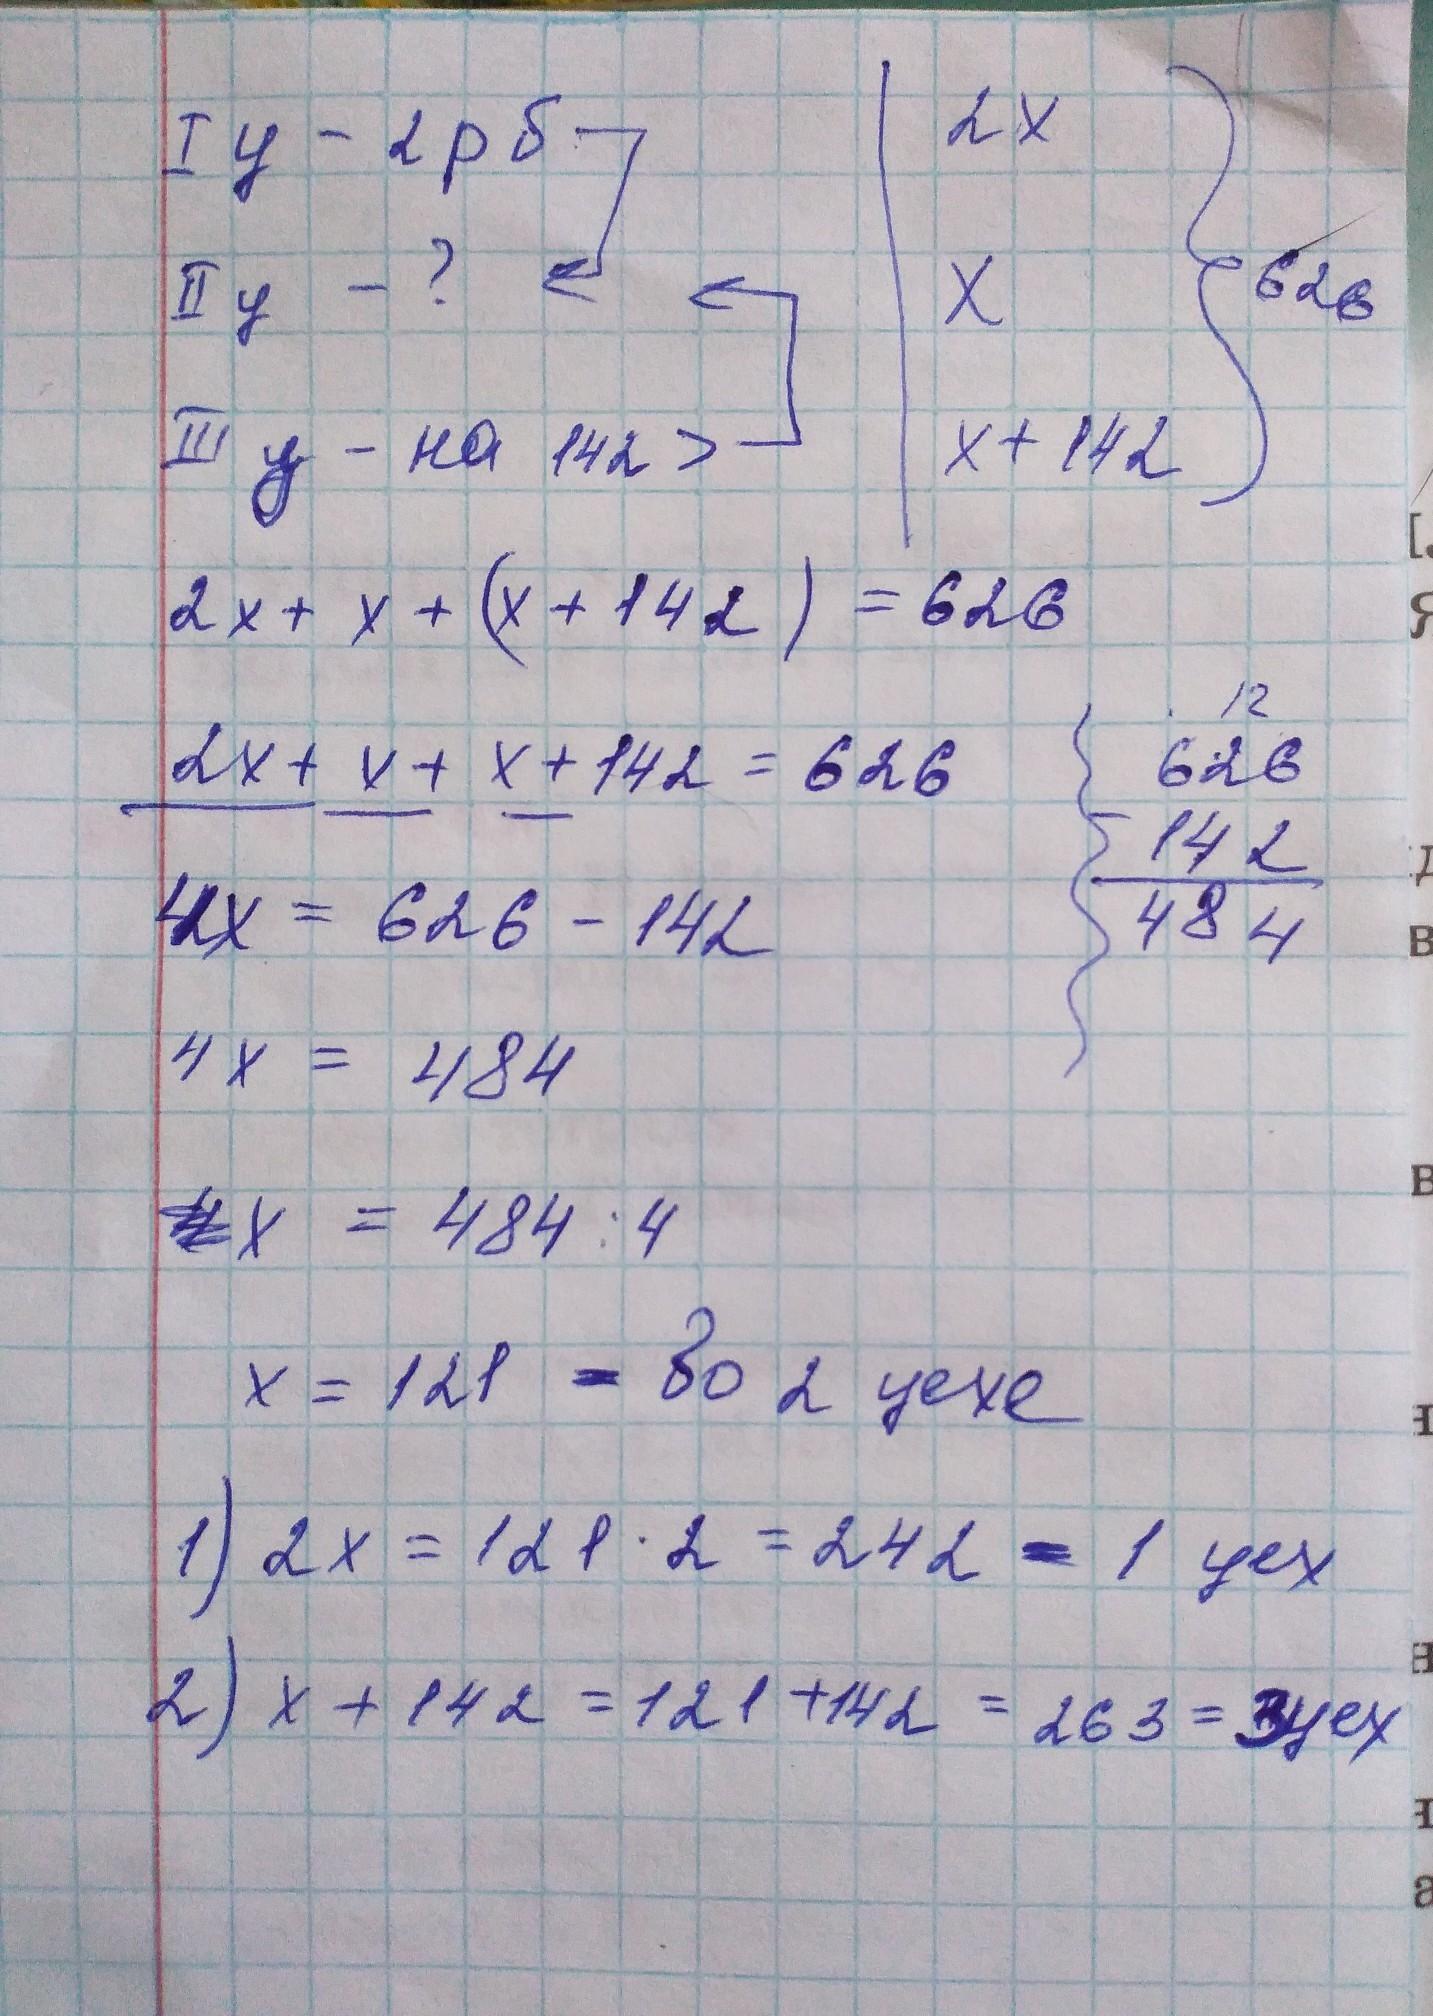 I ц - 2 р б | 2х
II ц - ? | х } 626
III ц - на 142 > | х + 142
2х + х + (х + 142) = 626
2х + х + х + 142 = 626
12
626
- 142
484
4х = 626 - 142
4х = 484
х = 484 : 4
х = 121 - во 2 цехе
1) 2х = 121 · 2 = 242 - 1 цех
2) х + 142 = 121 + 142 = 263 = 3 цех
[.
Я
д
в
в
н
н
н
а